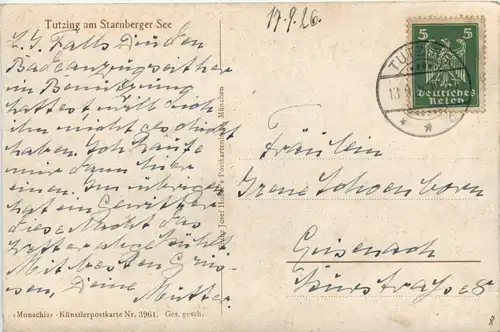 Tutzing am Starnberger See
17.9.26.
L. J. Falls Du den
Badeanzug seither
in Benützung
hattest, will ich
ihn nicht geschickt
haben. Ich kaufe
mir dann hier
einen. Im übrigen
hat ein Gewitter
diese Nacht das
Wetter abgekühlt
Mit besten Grüs-
sen, Deine Mutter.
»Monachia« Künstlerpostkarte Nr. 3961. Ges. gesch.
Josef Postkartenverlag, München
5 5
Deutsches
Reich
TUTZING
Fräulein
Irene Schoenborn
Eisenach
8